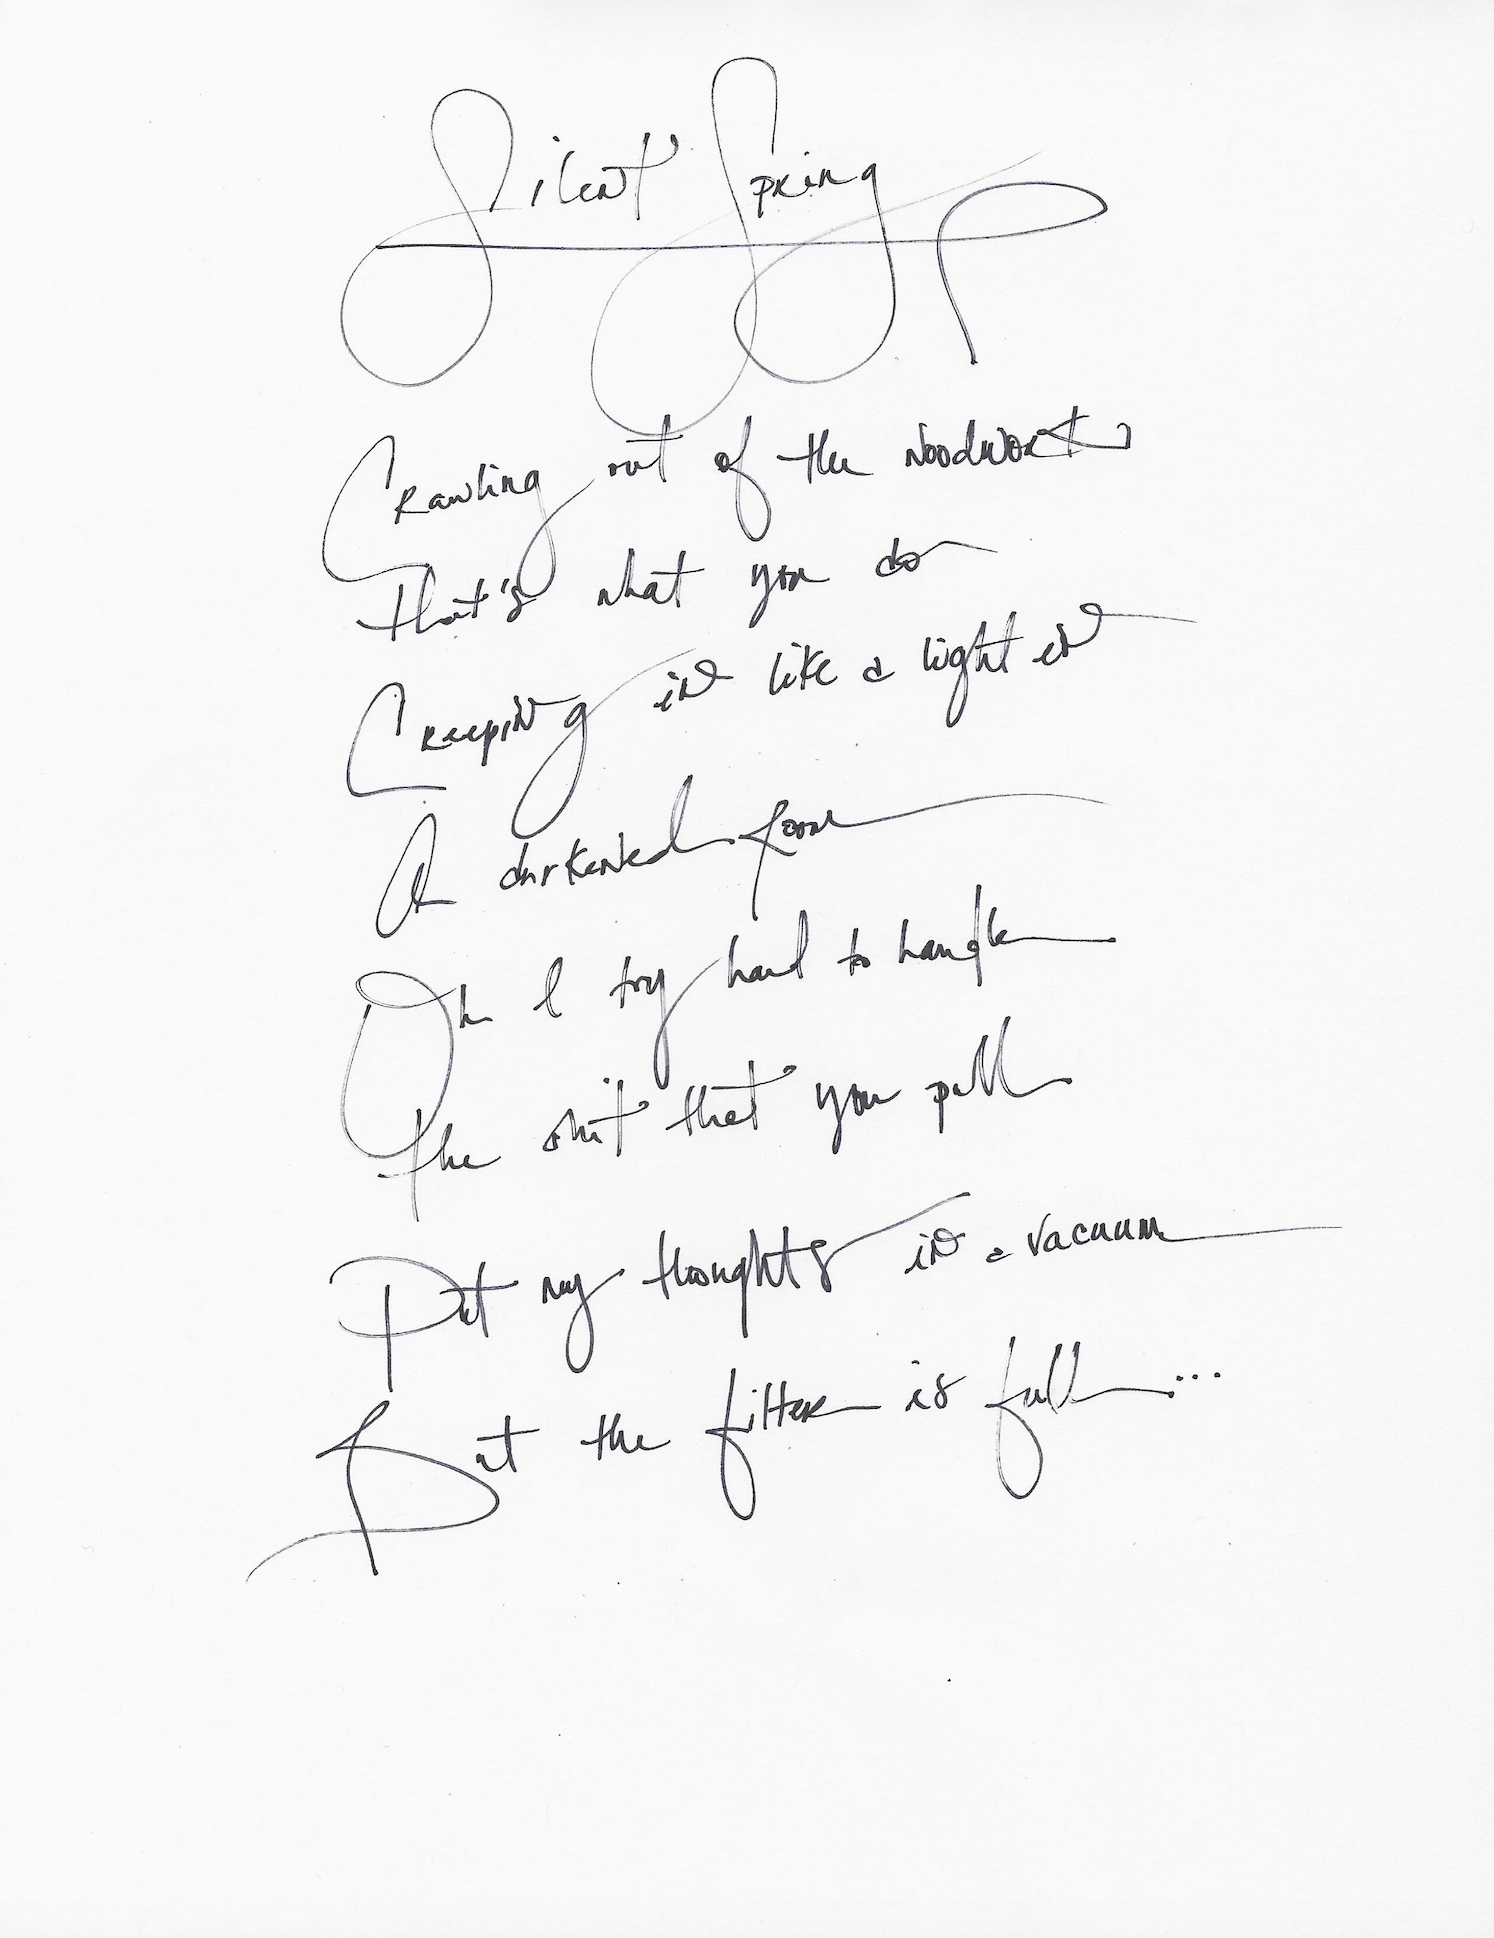 Silent Spring
Crawling out of the woodwork
that's what you do
Creeping in like a light in
A darkened room
Oh I try hard to handle
the shit that you pull
Put my thoughts in a vacuum
But the filter is full...